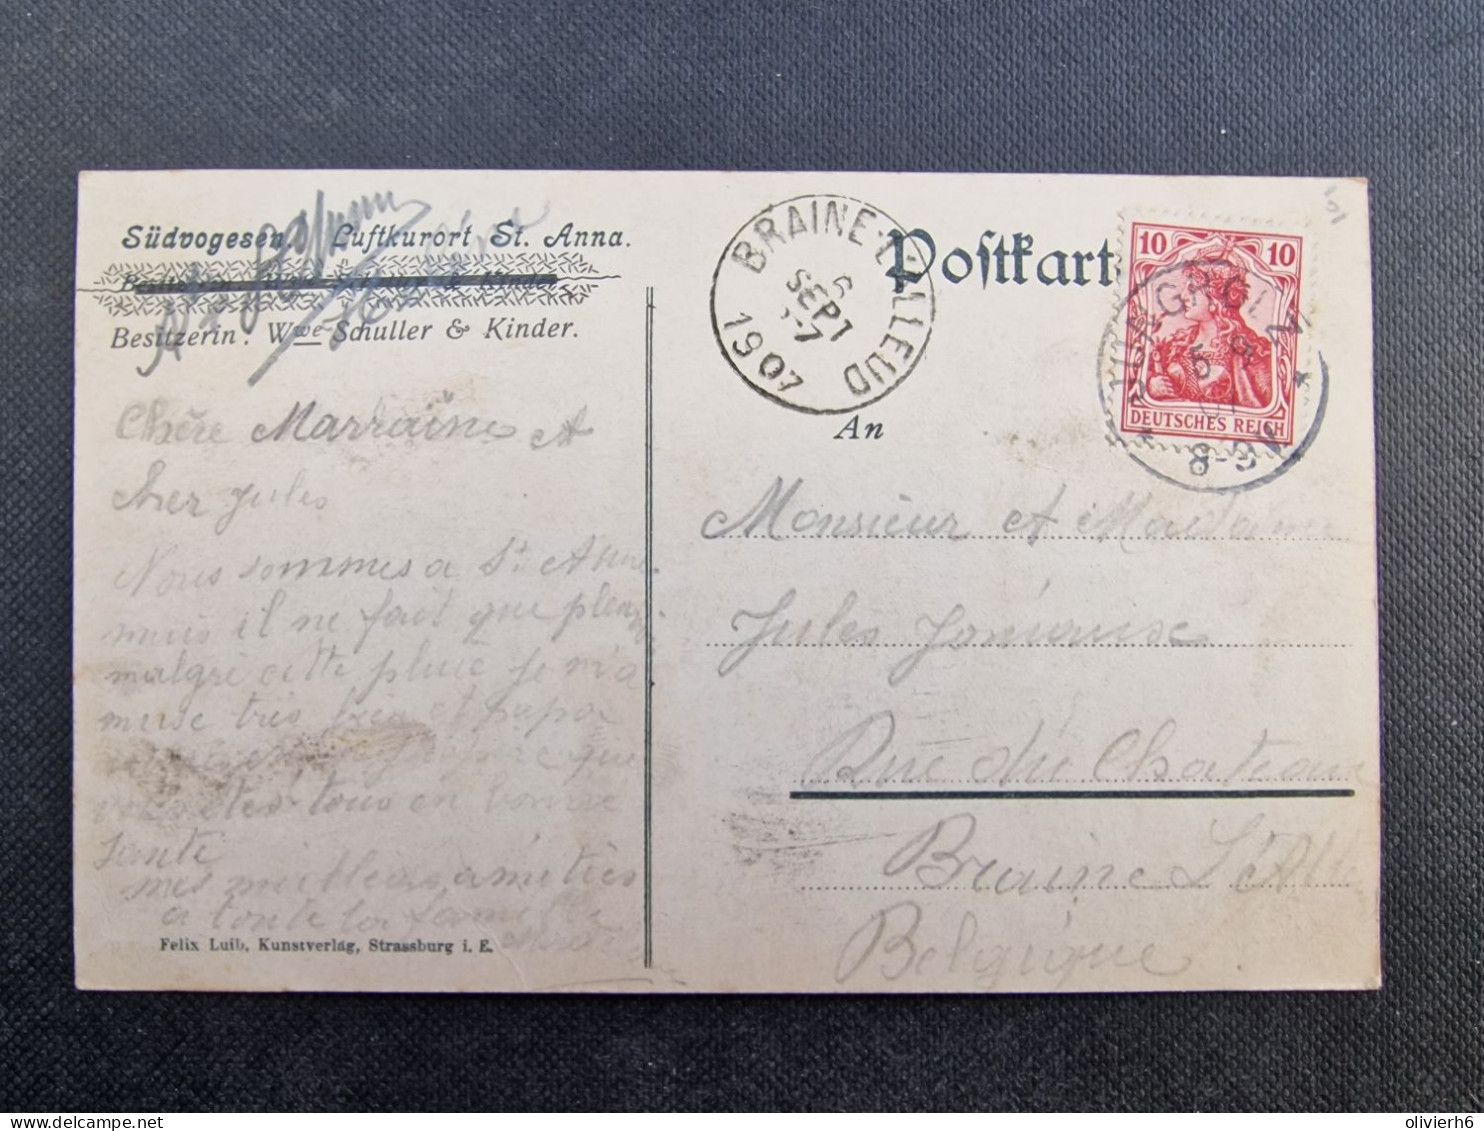 Südvogesen. Luftkurort St. Anna.
Besitzerin: Wwe Schuller & Kinder.
Chère Marraine et
Cher Jules
Nous sommes a St Anne
mais il ne fait que pleuv
malgré cette pluie je m'a
muse très bien et papa
que
vous êtes tous en bonne
santé
mes meilleurs amitiés
a toute la famille
Felix Luib, Kunstverlag, Strassburg i. E.
BRAINE-L'ALLEUD
6
SEPT
1907
Postkarte
10 10
DEUTSCHES REICH
JUNGHOLZ
5 9
07
8-9V
An
Monsieur et Madame
Jules
Rue du Chateau
Braine L'All
Belgique
olivierh6